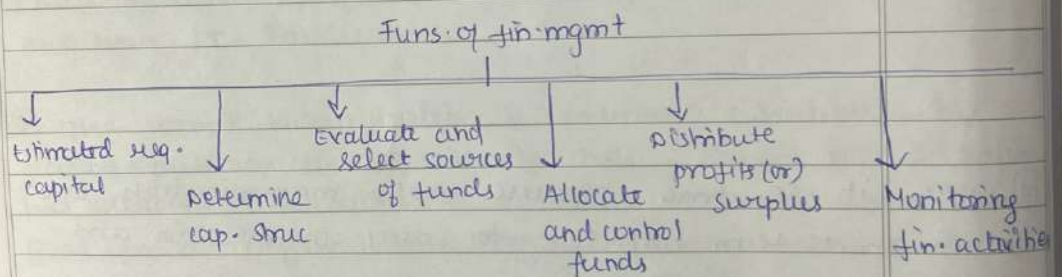 Funs. of fin. mgmt
Estimated req.
capital
Determine
cap. struc
Evaluate and
select sources
of funds
Allocate
and control
funds
Distribute
profits (or)
surplus
Monitoring
fin. activitie